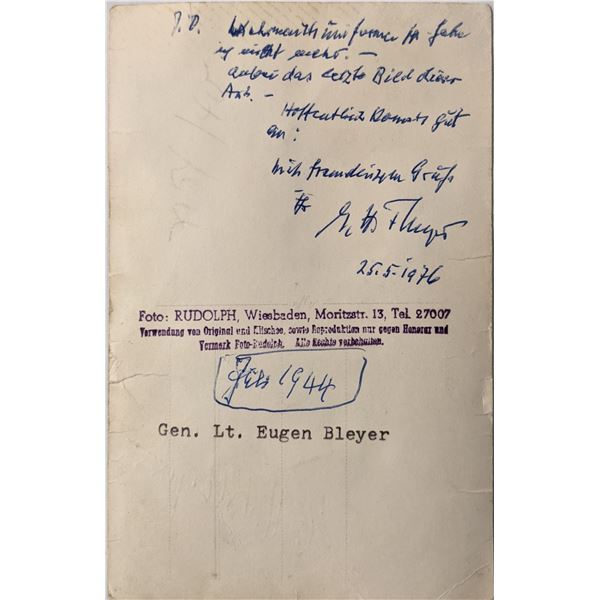 P.S. Wehrmachtsuniformen ... habe
ich nicht mehr. -
anbei das letzte Bild dieser
Art. -
Hoffentlich kommts gut
an!
Mit freundlichem Gruß
Ihr
25.5.1976
Foto: RUDOLPH, Wiesbaden, Moritzstr. 13, Tel. 27007
Verwendung von Original und Klischee, sowie Reproduktion nur gegen Honorar und
Vermerk Foto-Rudolph. Alle Rechte vorbehalten.
1944
Gen. Lt. Eugen Bleyer